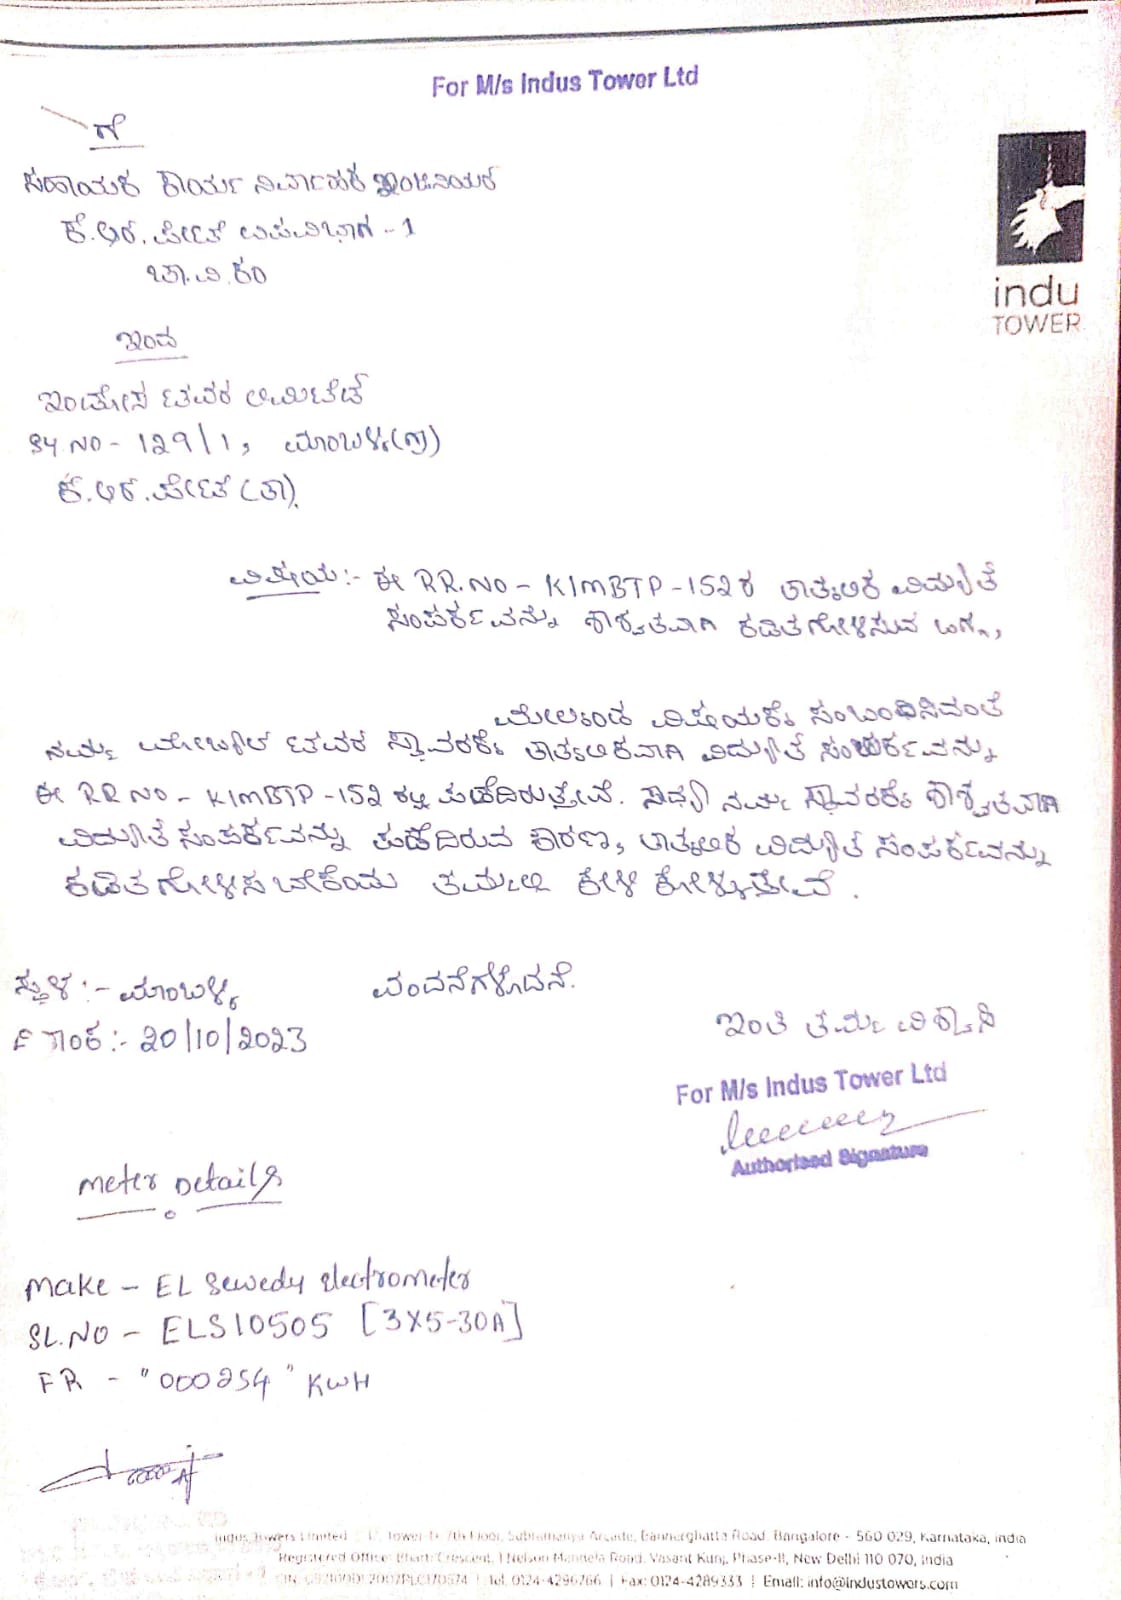 For M/s Indus Tower Ltd
ಗೆ
ಸಹಾಯಕ ಕಾರ್ಯ ನಿರ್ವಾಹಕ ಇಂಜಿನಿಯರ್
ಕೆ.ಆರ್.ಪೇಟೆ ಉಪವಿಭಾಗ - 1
ಚಾ.ವಿ.ಕಂ
indu
TOWER
ಇಂದ
ಇಂಡೋಸ ಟವರ ಲಿಮಿಟೆಡ್
SY.NO - 129/1, ಮಾಂಬಳ್ಳಿ(ಗ್ರಾ)
ಕೆ.ಆರ್.ಪೇಟೆ (ತಾ).
ವಿಷಯ:- ಈ RR.NO - KIMBTP -152ರ ತಾತ್ಕಲಿಕ ವಿದ್ಯುತ
ಸಂಪರ್ಕವನ್ನು ಶಾಶ್ವತವಾಗಿ ಕಡಿತಗೋಳಿಸುವ ಬಗ್ಗೆ,
ಮೇಲ್ಕಂಡ ವಿಷಯಕ್ಕೆ ಸಂಬಂಧಿಸಿದಂತೆ
ನಮ್ಮ ಮೋಬೈಲ ಟವರ ಸ್ಥಾವರಕ್ಕೆ ತಾತ್ಕಲಿಕವಾಗಿ ವಿದ್ಯುತ ಸಂಪರ್ಕವನ್ನು
ಈ RR NO - KIMBTP -152 ರಲ್ಲಿ ಪಡೆದಿರುತ್ತೇವೆ. ಸಧ್ಯ ನಮ್ಮ ಸ್ಥಾವರಕ್ಕೆ ಶಾಶ್ವತವಾಗಿ
ವಿದ್ಯುತ ಸಂಪರ್ಕವನ್ನು ಪಡೆದಿರುವ ಕಾರಣ, ತಾತ್ಕಲಿಕ ವಿದ್ಯುತ ಸಂಪರ್ಕವನ್ನು
ಕಡಿತಗೋಳಿಸಬೇಕೆಂದು ತಮ್ಮಲ್ಲಿ ಕೇಳಿ ಕೋಳ್ಳುತ್ತೇವೆ.
ಸ್ಥಳ:- ಮಾಂಬಳ್ಳಿ
ವಂದನೆಗಳೊದನೆ.
ದಿನಾಂಕ:- 20/10/2023
ಇಂತಿ ತಮ್ಮ ವಿಶ್ವಾಸಿ
For M/s Indus Tower Ltd
Authorised Signature
Meter Details
Make - EL Sewedy electrometer
SL.NO - ELS10505 [3X5-30A]
FR - "000254" KWH
Indus Towers Limited Tower-1, 7th Floor, Subramanya Arcade, Bannerghatta Road, Bangalore - 560 029, Karnataka, India
Registered Office: Bharti Crescent, 1 Nelson Mandela Road, Vasant Kunj, Phase-II, New Delhi 110 070, India
Tel. 0124-4296766 | Fax: 0124-4289333 | Email: info@industowers.com